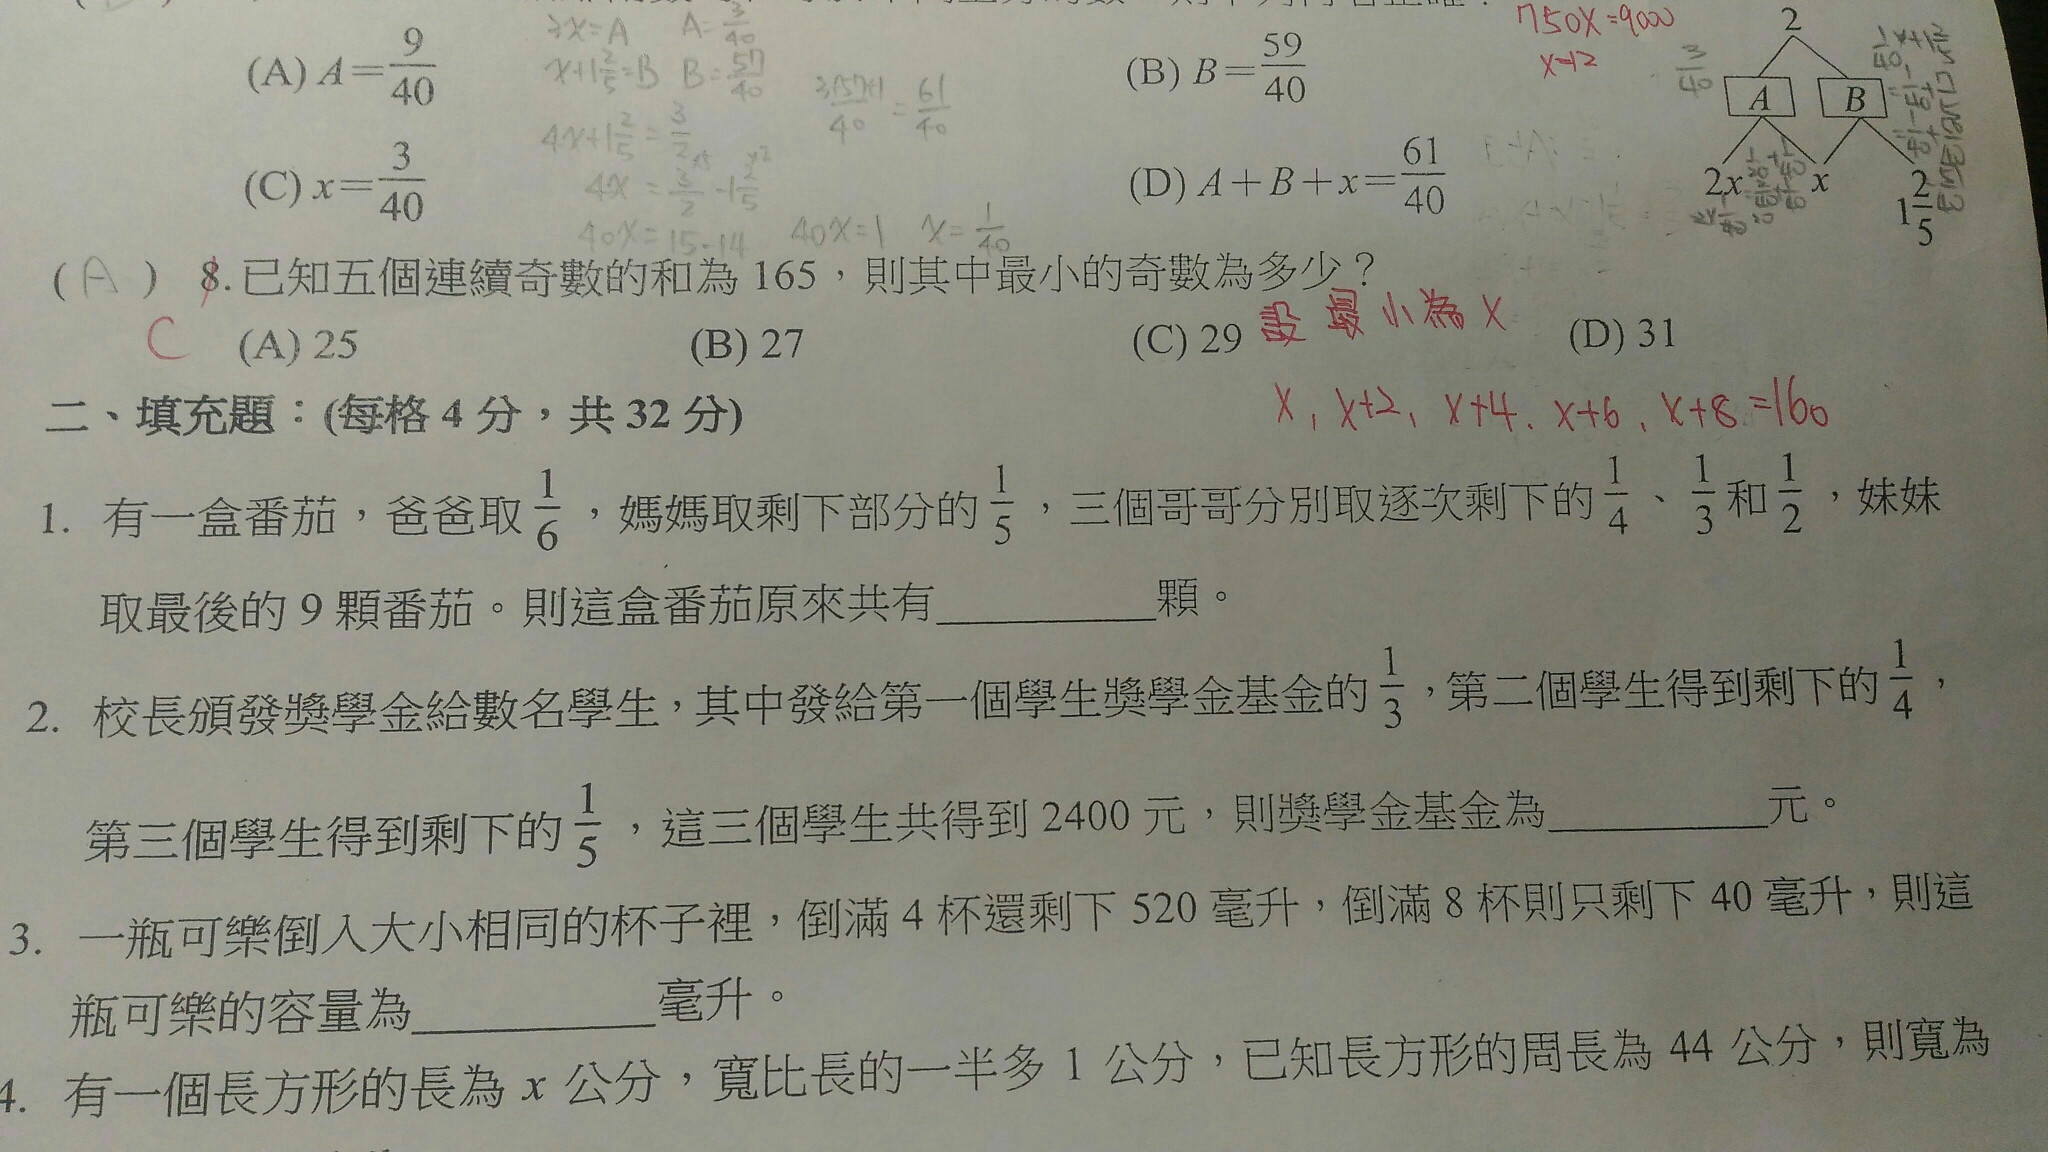 (A) A=9/40 (B) B=59/40
(C) x=3/40 (D) A+B+x=61/40
3x=A A=3/40
x+1 2/5=B B=57/40
4x+1 2/5=3/2
4x=3/2-1 2/5
40x=15-14 40x=1 x=1/40
3+57+1/40=61/40
750x=9000
x=12
2
A B
2x x 1 2/5
( A ) 8.已知五個連續奇數的和為 165,則其中最小的奇數為多少?
C (A) 25 (B) 27 (C) 29 (D) 31
設 最小為 x
x, x+2, x+4, x+6, x+8=160
二、填充題:(每格 4 分,共 32 分)
1. 有一盒番茄,爸爸取1/6,媽媽取剩下部分的1/5,三個哥哥分別取逐次剩下的1/4、1/3和1/2,妹妹
取最後的 9 顆番茄。則這盒番茄原來共有__________顆。
2. 校長頒發獎學金給數名學生,其中發給第一個學生獎學金基金的1/3,第二個學生得到剩下的1/4,
第三個學生得到剩下的1/5,這三個學生共得到 2400 元,則獎學金基金為__________元。
3. 一瓶可樂倒入大小相同的杯子裡,倒滿 4 杯還剩下 520 毫升,倒滿 8 杯則只剩下 40 毫升,則這
瓶可樂的容量為__________毫升。
4. 有一個長方形的長為 x 公分,寬比長的一半多 1 公分,已知長方形的周長為 44 公分,則寬為